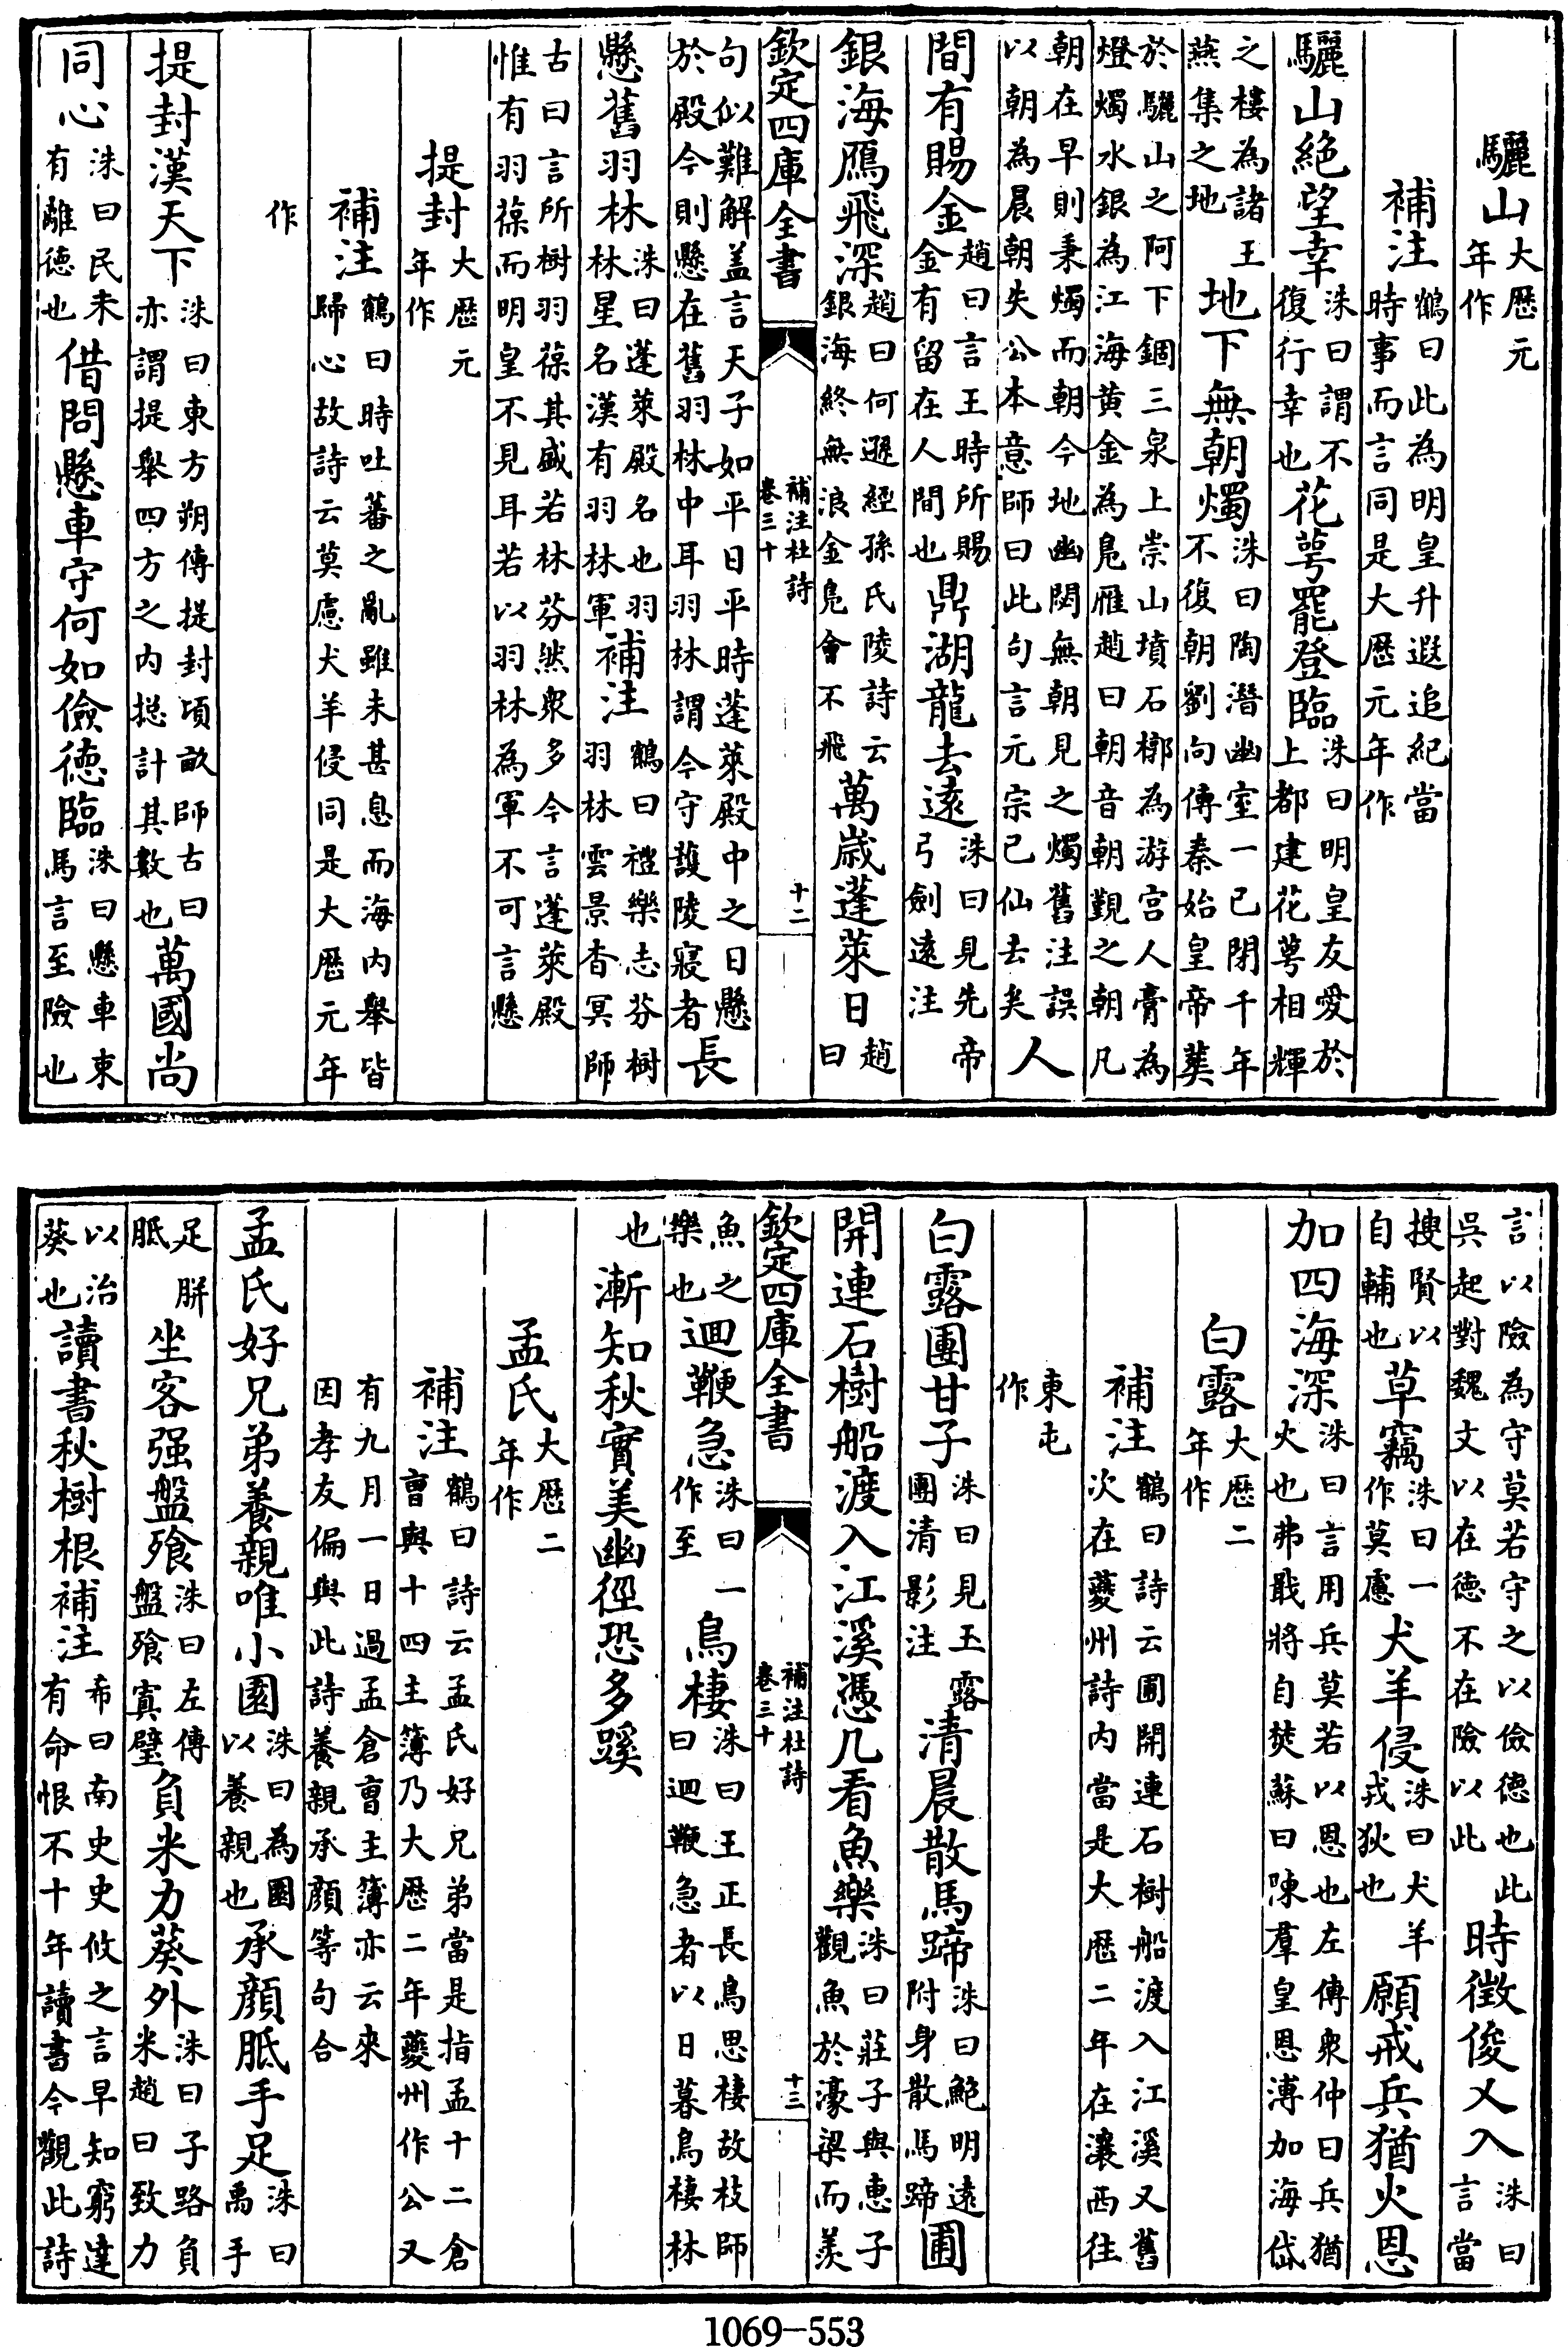 驪山大厯元年作
補注鶴曰此為明皇升遐追紀當時事而言同是大厯元年作
驪山絶望幸洙曰謂不復行幸也花萼罷登臨洙曰明皇友愛於上都建花萼相輝
之樓為諸王燕集之地地下無朝燭洙曰陶潛幽室一已閉千年不復朝劉向傳秦始皇帝葬
於驪山之阿下錮三泉上崇山墳石槨為游宫人膏為燈燭水銀為江海黄金為鳬雁趙曰朝音朝覲之朝凡
朝在早則秉燭而朝今地幽閟無朝見之燭舊注誤以朝為晨朝失公本意師曰此句言元宗已仙去矣人
間有賜金趙曰言王時所賜金有留在人間也鼎湖龍去逺洙曰見先帝弓劍逺注
銀海鴈飛深趙曰何遜經孫氏陵詩云銀海終無浪金鳬會不飛萬嵗蓬萊日趙曰
欽定四庫全書 補注杜詩卷三十 十二
句似難解盖言天子如平日平時蓬萊殿中之日懸於殿今則懸在舊羽林中耳羽林謂今守護陵寢者長
懸舊羽林洙曰蓬萊殿名也羽林星名漢有羽林軍補注鶴曰禮樂志芬樹羽林雲景杳冥師
古曰言所樹羽葆其盛若林芬然衆多今言蓬萊殿惟有羽葆而明皇不見耳若以羽林為軍不可言懸
提封大厯元年作
補注鶴曰時吐蕃之亂雖未甚息而海内舉皆歸心故詩云莫慮犬羊侵同是大厯元年
作
提封漢天下洙曰東方朔傳提封頃畝師古曰亦謂提舉四方之内総計其數也萬國尚
同心洙曰民未有離德也借問懸車守何如儉德臨洙曰懸車束馬言至險也
言以險為守莫若守之以儉德也此吳起對魏文以在德不在險以此時徴俊乂入洙曰言當
搜賢以自輔也草竊洙曰一作莫慮犬羊侵洙曰犬羊戎狄也願戒兵猶火恩
加四海深洙曰言用兵莫若以恩也左傳衆仲曰兵猶火也弗戢將自焚蘇曰陳羣皇恩溥加海岱
白露大厯二年作
補注鶴曰詩云圃開連石樹船渡入江溪又舊次在夔州詩内當是大厯二年在瀼西往
東屯作
白露團甘子洙曰見玉露團清影注清晨散馬蹄洙曰鮑明逺附身散馬蹄圃
開連石樹船渡入江溪憑几看魚樂洙曰莊子與惠子觀魚於濠梁而羨
欽定四庫全書 補注杜詩卷三十 十三
魚之樂也迴鞭急洙曰一作至鳥棲洙曰王正長鳥思棲故枝師曰迴鞭急者以日暮鳥棲林
也漸知秋實美幽徑恐多蹊
孟氏大厯二年作
補注鶴曰詩云孟氏好兄弟當是指孟十二倉曹與十四主簿乃大厯二年夔州作公又
有九月一日過孟倉曹主簿亦云來因孝友偏與此詩養親承顔等句合
孟氏好兄弟養親唯小園洙曰為園以養親也承顔胝手足洙曰禹手
足胼胝坐客强盤飱洙曰左傳盤飱寘璧負米力葵外洙曰子路負米趙曰致力
以治葵也讀書秋樹根補注希曰南史史攸之言早知窮達有命恨不十年讀書今觀此詩
1069—553